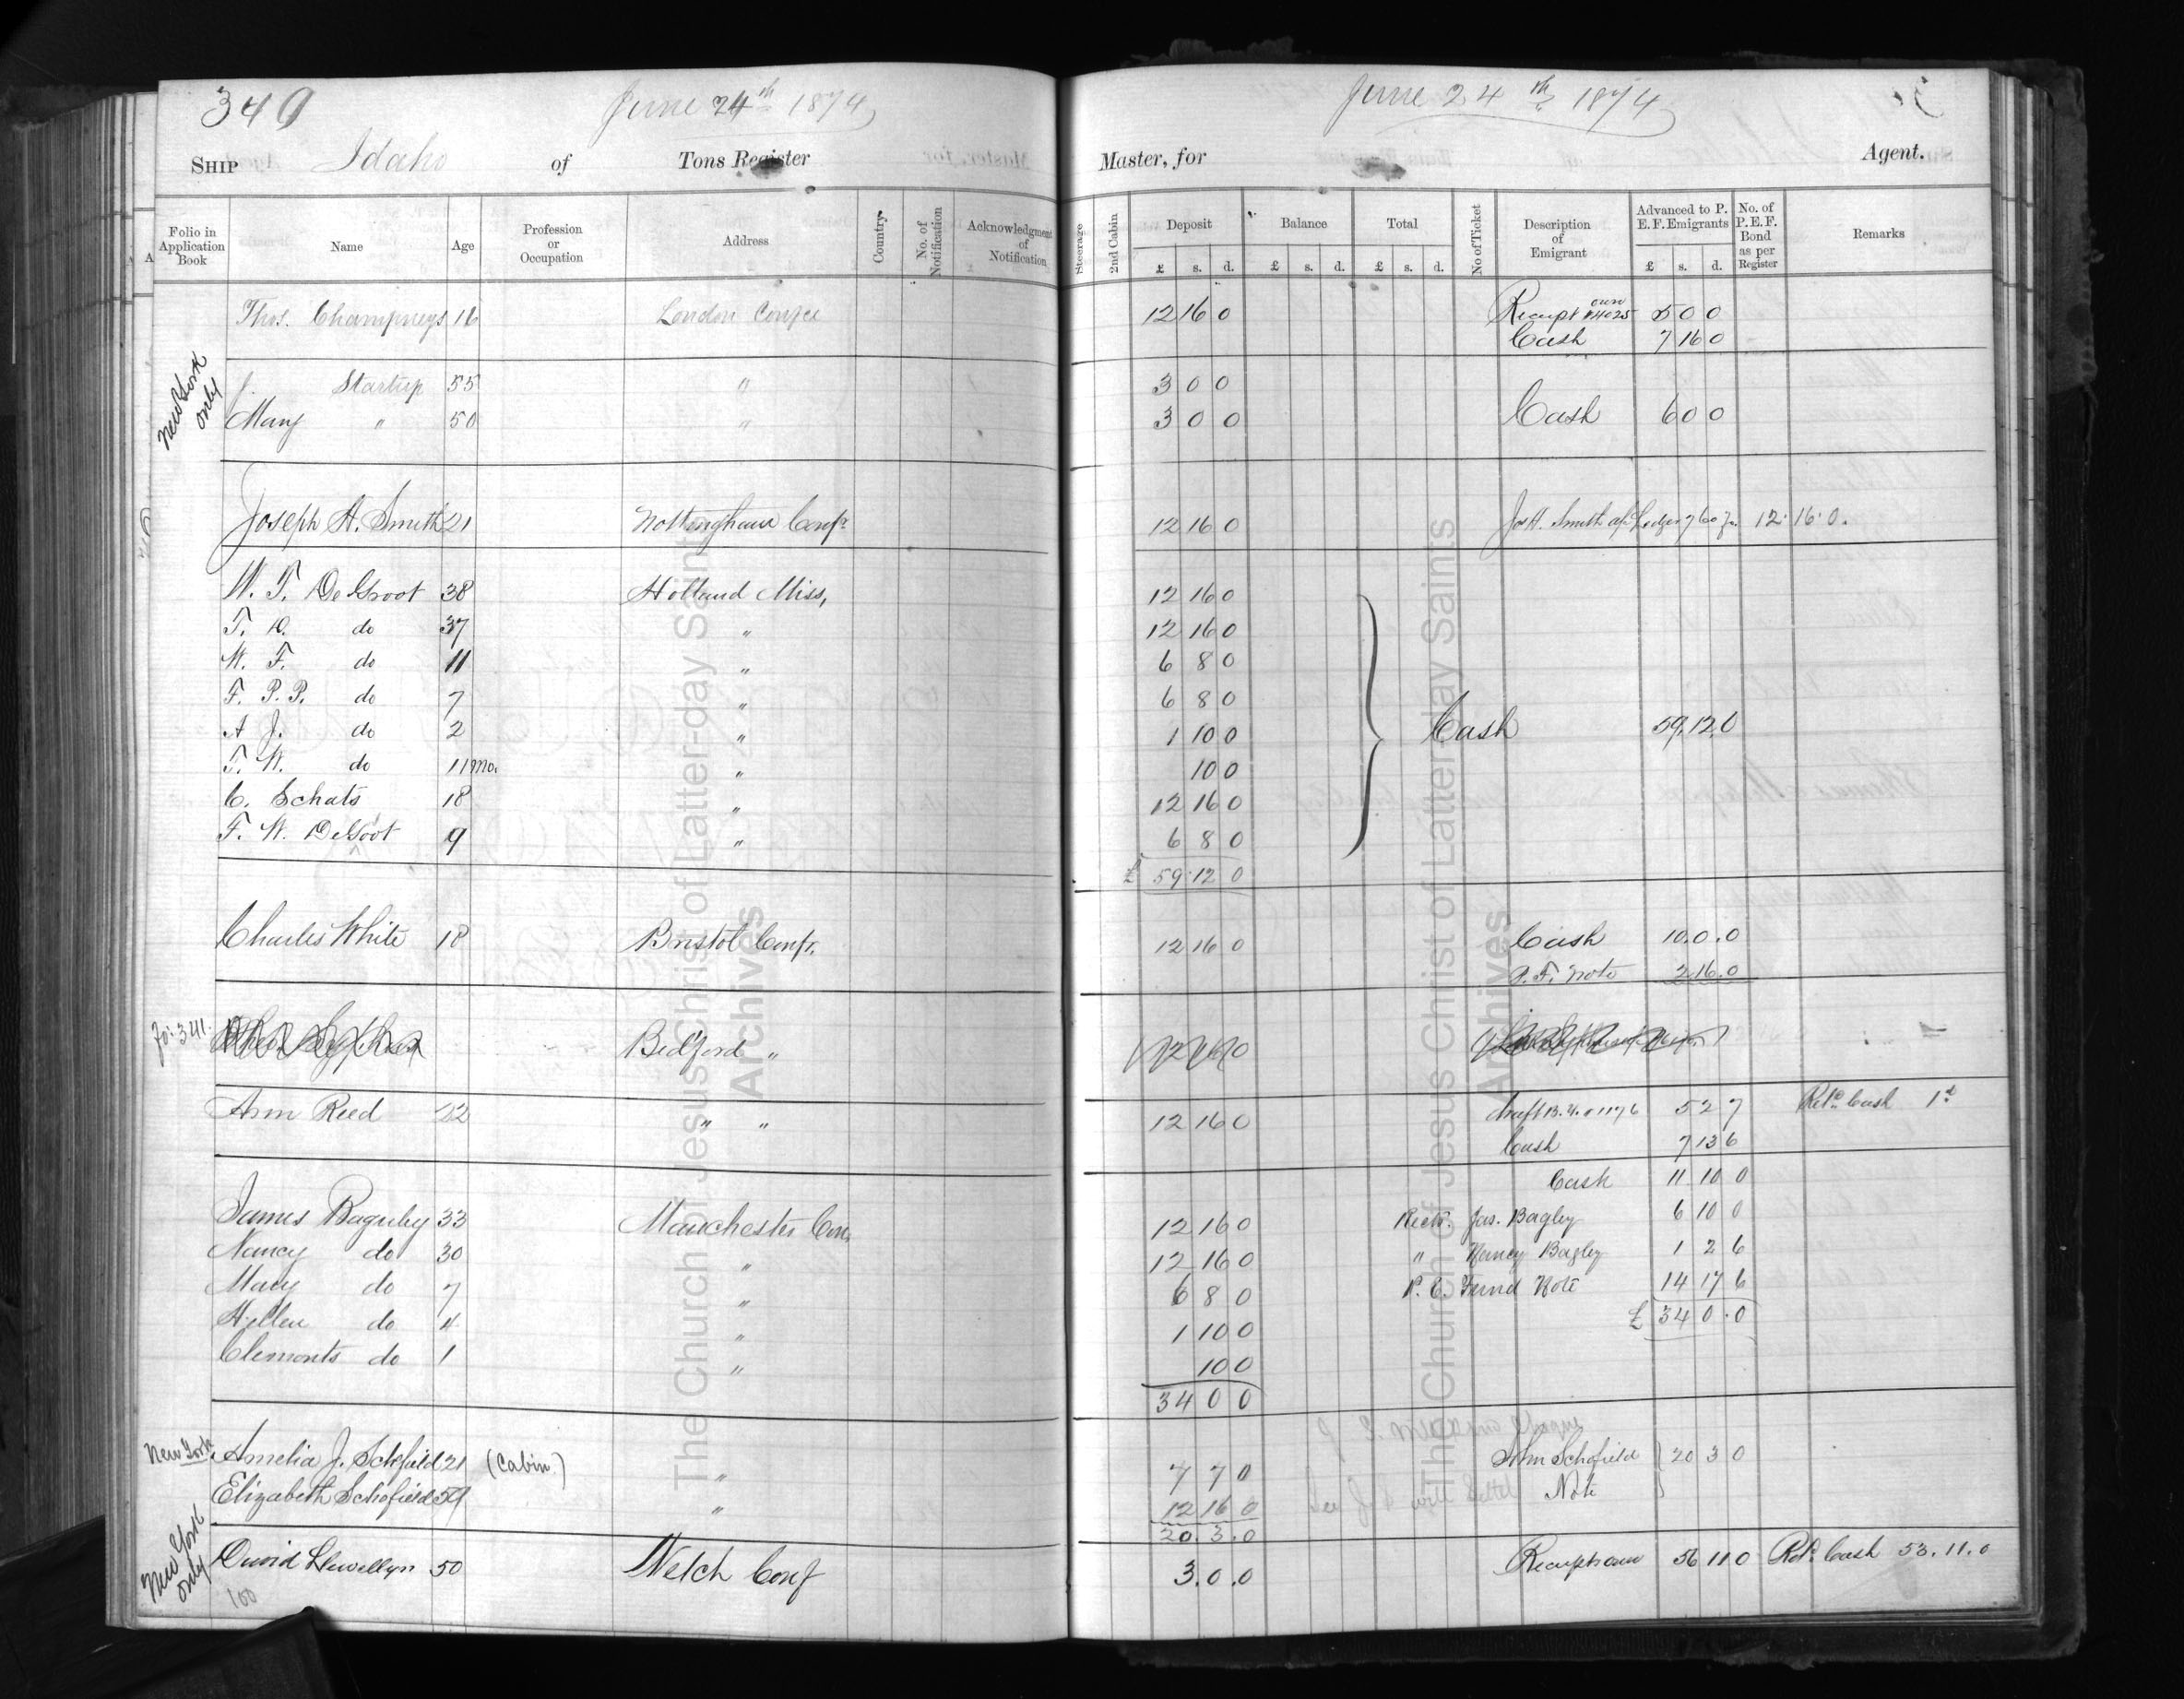 349 June 24th 1874 June 24th 1874
SHIP Idaho of Tons Register Master, for Agent.
Folio in Application Book Name Age Profession or Occupation Address Country No. of Notification Acknowledgment of Notification Steerage 2nd Cabin Deposit Balance Total No of Ticket Description of Emigrant Advanced to P. E. F. Emigrants No. of P.E.F. Bond as per Register Remarks
£ s. d. £ s. d. £ s. d. £ s. d.
Thos. Champneys 16 London Confce 12 16 0 Receipt own 5 0 0
Cash 7 16 0
New York only
J. Startup 55 " 3 0 0
Mary " 50 " 3 0 0 Cash 6 0 0
Joseph H. Smith 21 Nottingham Confe 12 16 0 Jos H. Smith a/c Ledger 760 12.16.0.
W. T. DeGroot 38 Holland Miss, 12 16 0
T. D. do 37 " 12 16 0
W. F. do 11 " 6 8 0
F. P. P. do 7 " 6 8 0
A J. do 2 " 1 10 0 Cash 59.12.0
T. W. do 11 mo. " 10 0
C. Schats 18 " 12 16 0
F. W. DeGoot 9 " 6 8 0
£ 59.12 0
Charles White 18 Bristol Confr. 12 16 0 Cash 10.0.0
P. F. Note 2.16.0
fo: 341. Bedford " 12 16 0
Ann Reed 22 " " 12 16 0 draft 5 2 7 Retd Cash 1d
Cash 7 13 6
Cash 11 10 0
James Baguley 33 Manchester Con, 12 16 0 Rect. Jas. Bagley 6 10 0
Nancy do 30 " 12 16 0 " Nancy Bagley 1 2 6
Mary do 7 " 6 8 0 P. E. Fund Note 14 17 6
Hellen do 4 " 1 10 0 £ 34 0.0
Clemonts do 1 " 10 0
34 0 0
New York Amelia J. Schofield 21 (Cabin) " 7 7 0 John Schofield 20 3 0
Elizabeth Schofield 59 " 12 16 0 Note
20.3.0
New York only David Llewellyn 50 Welch Conf 3.0.0 Receipt own 56 11 0 Retd. Cash 53.11.0
100
The Church of Jesus Christ of Latter-day Saints
Archives
The Church of Jesus Christ of Latter-day Saints
Archives